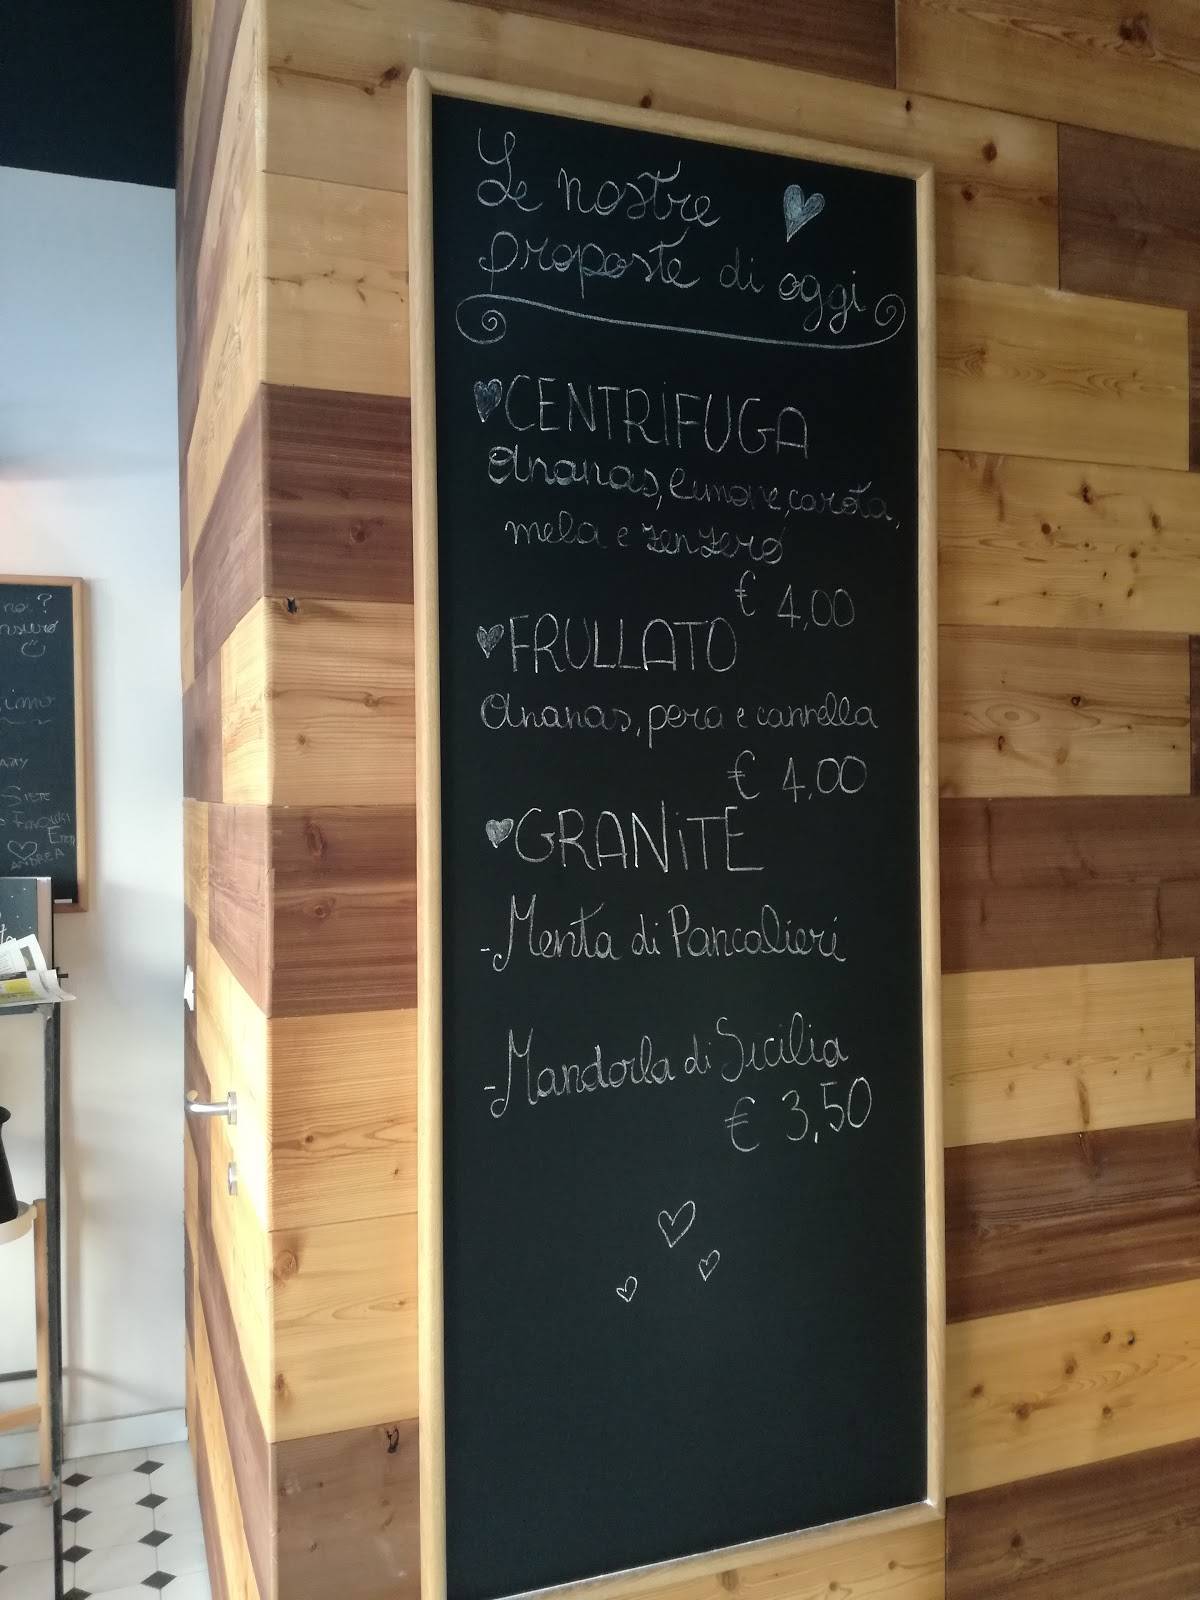 Le nostre
proposte di oggi
CENTRIFUGA
Ananas, limone, carota,
mela e zenzero
€ 4,00
FRULLATO
Ananas, pera e cannella
€ 4,00
GRANITE
-Menta di Pancalieri
-Mandorla di Sicilia
€ 3,50
SIETE
ANDREA